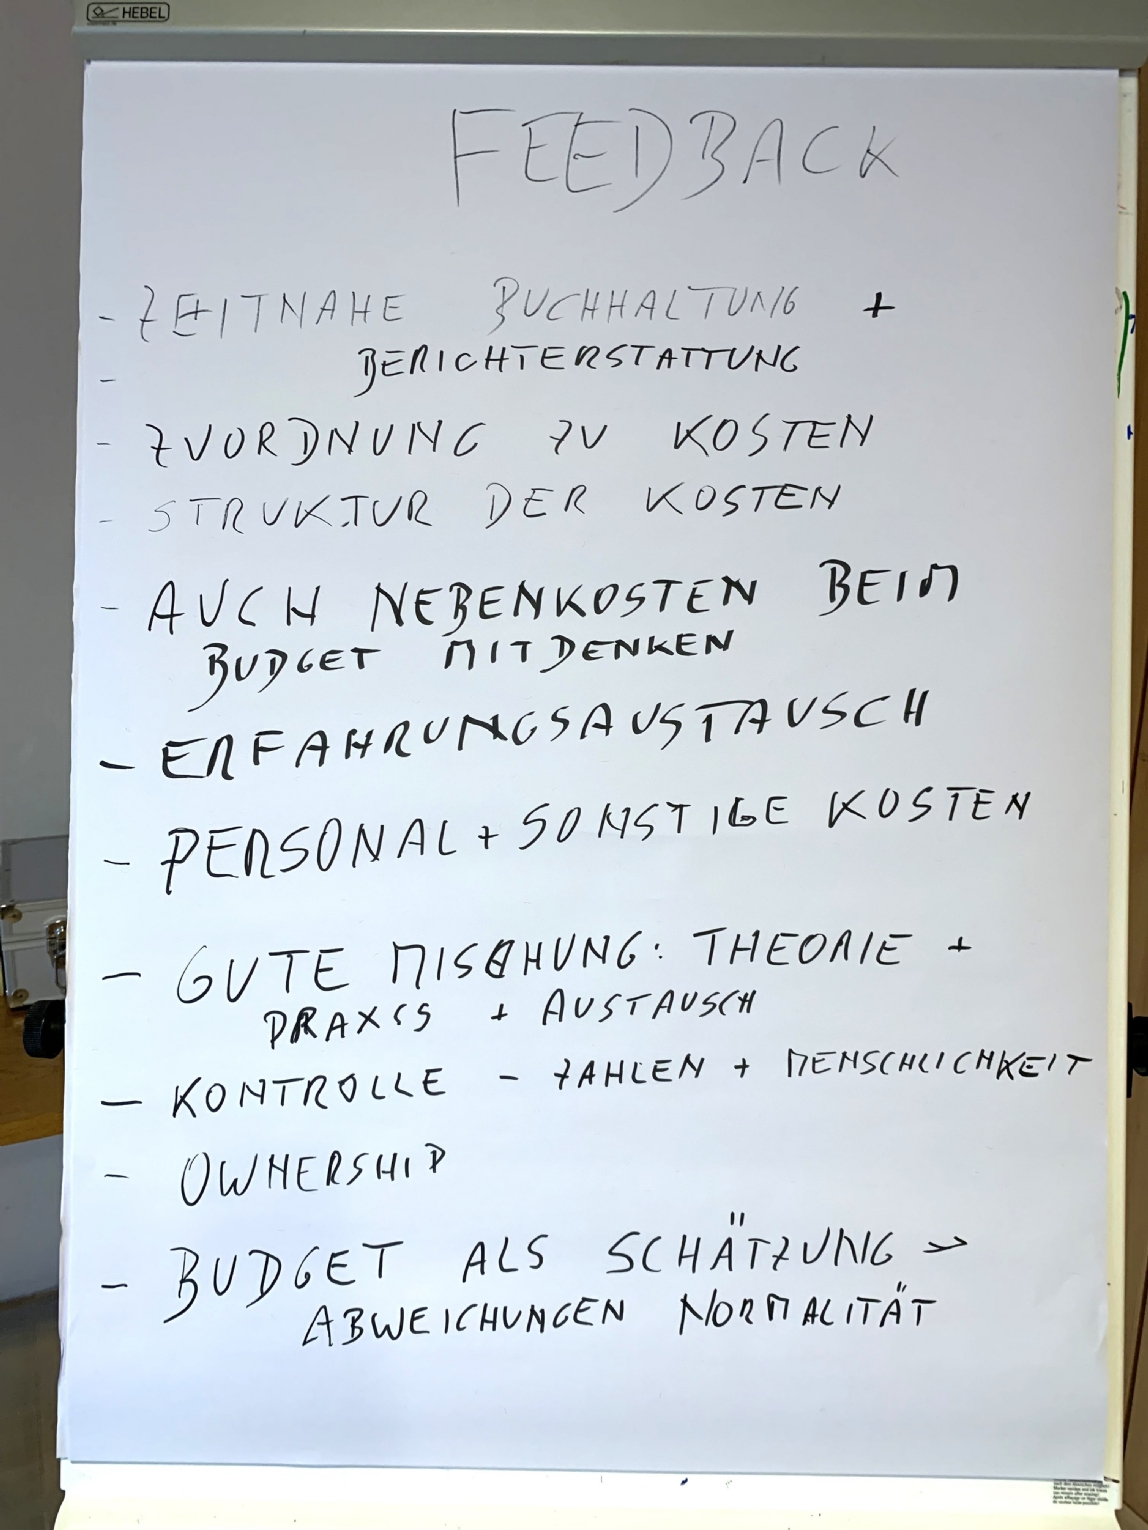 HEBEL
FEEDBACK
- ZEITNAHE BUCHHALTUNG +
- BERICHTERSTATTUNG
- ZUORDNUNG ZU KOSTEN
- STRUKTUR DER KOSTEN
- AUCH NEBENKOSTEN BEIM
BUDGET MITDENKEN
- ERFAHRUNGSAUSTAUSCH
- PERSONAL + SONSTIGE KOSTEN
- GUTE MISCHUNG: THEORIE +
PRAXIS + AUSTAUSCH
- KONTROLLE - ZAHLEN + MENSCHLICHKEIT
- OWNERSHIP
- BUDGET ALS SCHÄTZUNG →
ABWEICHUNGEN NORMALITÄT